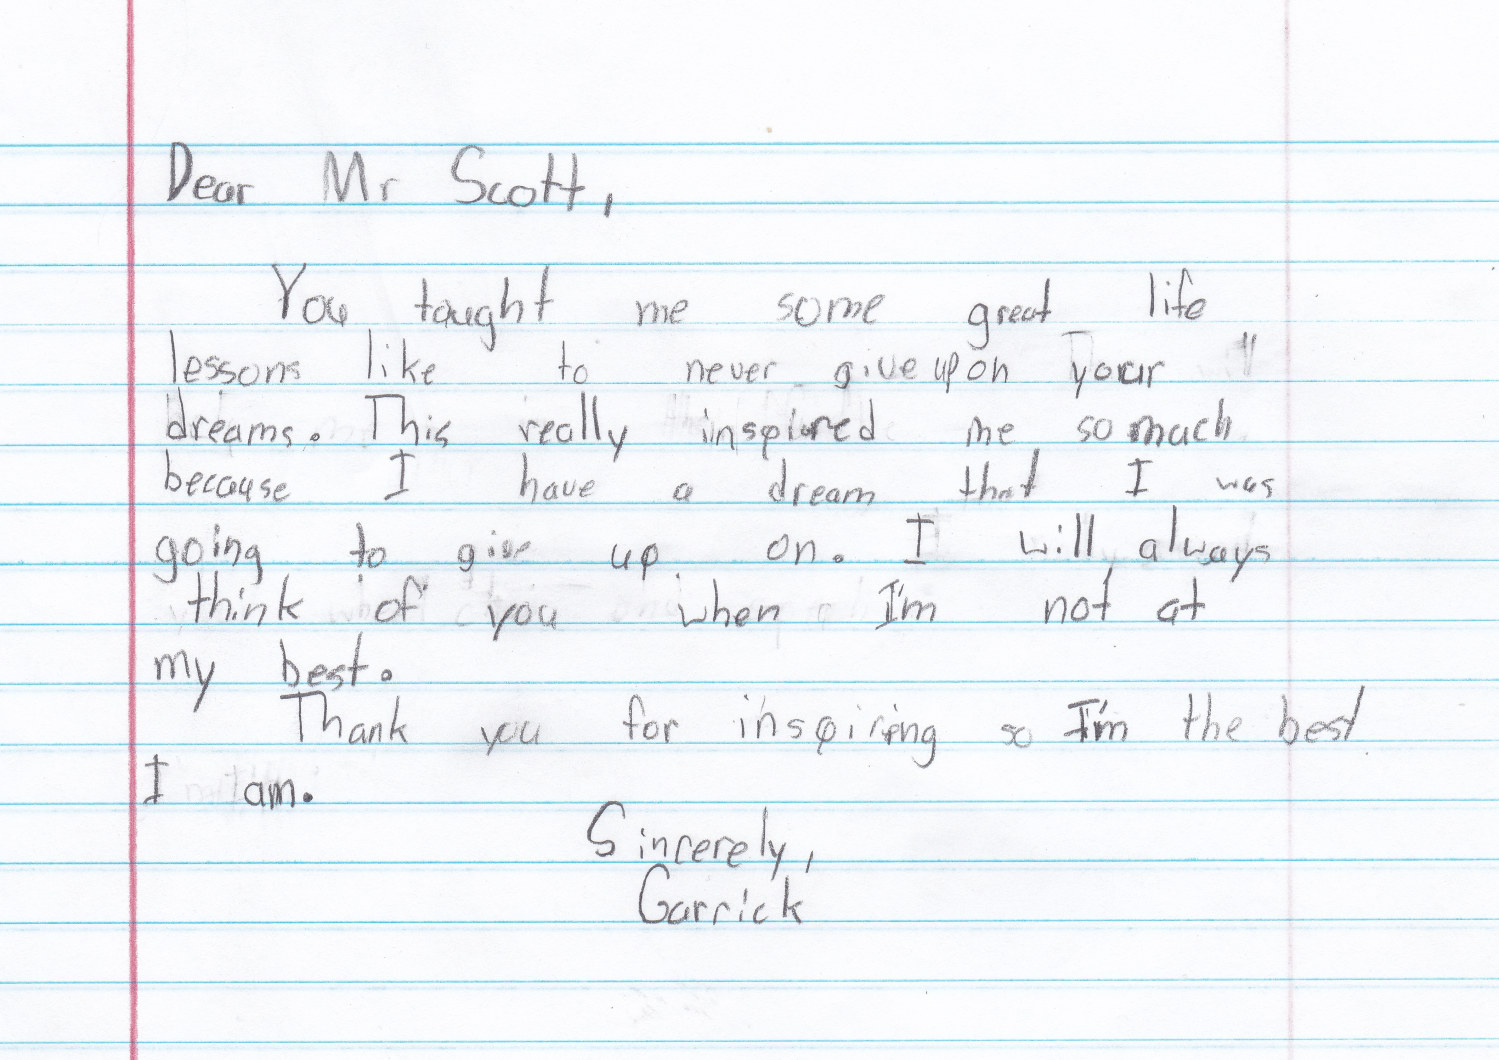 Dear Mr Scott,
You taught me some great life
lessons like to never give up on your
dreams. This really inspired me so much
because I have a dream that I was
going to give up on. I will always
think of you when I'm not at
my best.
Thank you for inspiring so I'm the best
I am.
Sincerely,
Garrick